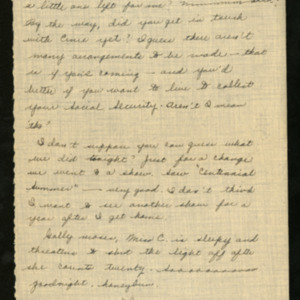 a little one left for me?
By the way, did you get in touch
with Cince yet? I guess there aren't
many arrangements to be made - that
is if you're coming - and you'd
better if you want to live to collect
your Social Security. Don't I mean
tho!
I don't suppose you can guess what
we did tonight? Just for a change
we went to a show. Saw "Centennial
Summer" - very good. I don't think
I want to see another show for a
year after I get home.
Golly moses, Miss C. is sleepy and
threatens to shut the light off after
she counts twenty. Soooooooooo
goodnight, honeybun